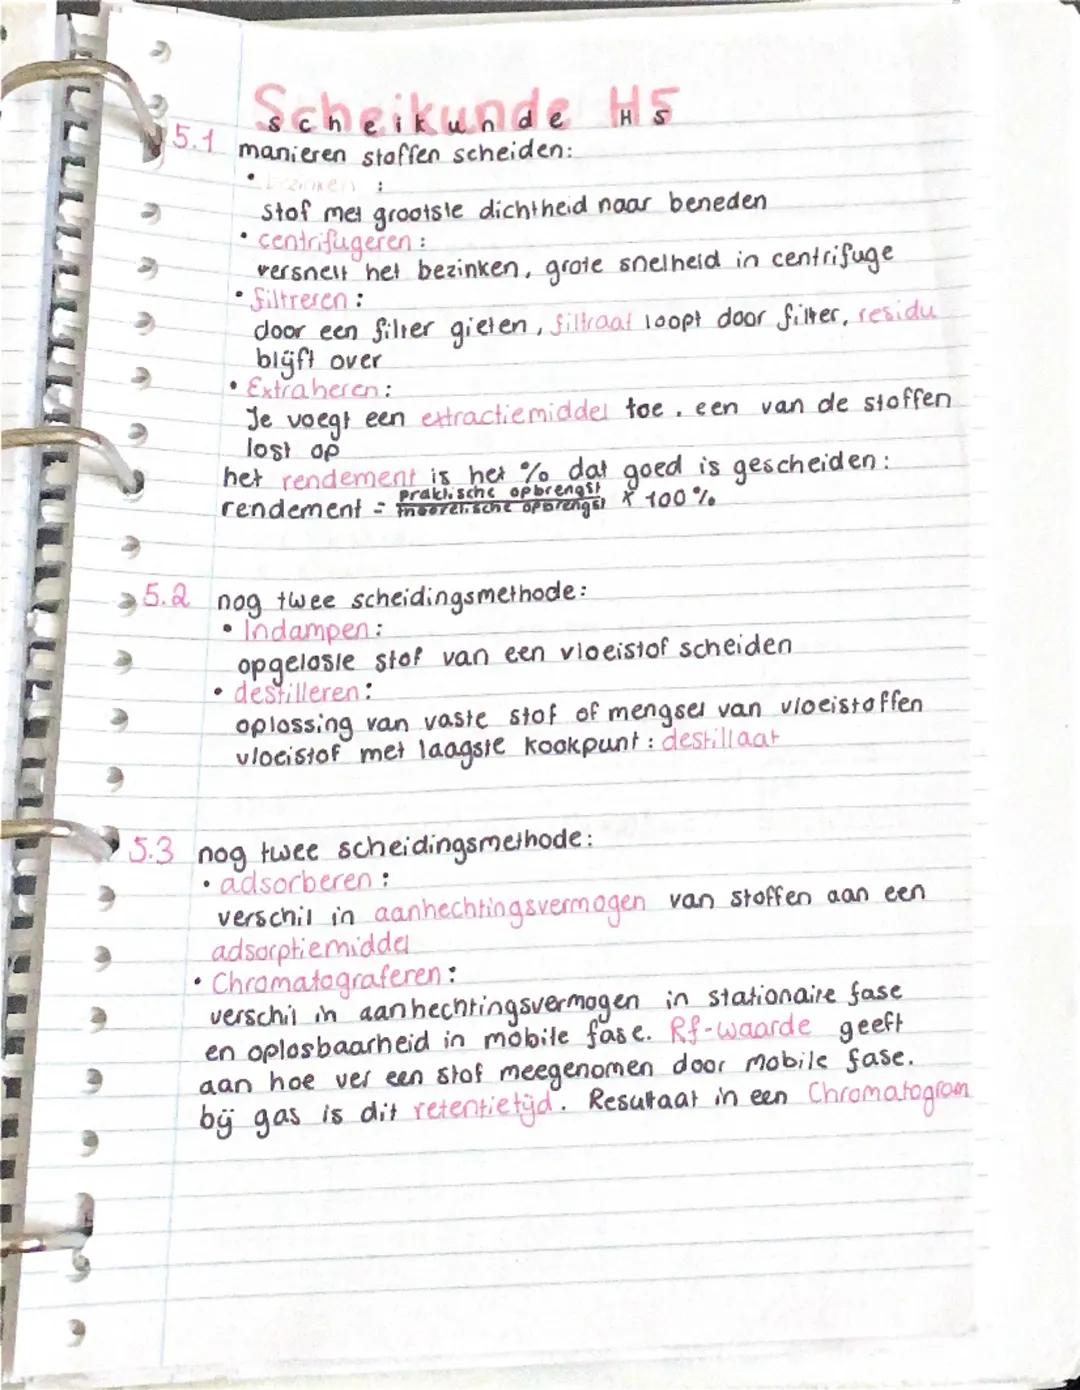 Scheikunde H5
scheikunde H5
5.1 manieren stoffen scheiden:
• bezinken :
stof met grootste dichtheid naar beneden
• centrifugeren :
versnelt het bezinken, grote snelheid in centrifuge
• filtreren :
door een filter gieten, filtraat loopt door filter, residu
blijft over
• Extraheren :
Je voegt een extractiemiddel toe. een van de stoffen
lost op
het rendement is het % dat goed is gescheiden:
rendement = praktische opbrengst / theoretische opbrengst x 100%
5.2 nog twee scheidingsmethode:
• Indampen :
opgeloste stof van een vloeistof scheiden
• destilleren :
oplossing van vaste stof of mengsel van vloeistoffen
vloeistof met laagste kookpunt : destillaat
5.3 nog twee scheidingsmethode:
• adsorberen :
verschil in aanhechtingsvermogen van stoffen aan een
adsorptiemiddel
• Chromatograferen :
verschil in aanhechtingsvermogen in stationaire fase
en oplosbaarheid in mobile fase. Rf-waarde geeft
aan hoe ver een stof meegenomen door mobile fase.
bij gas is dit retentietijd. Resultaat in een Chromatogram